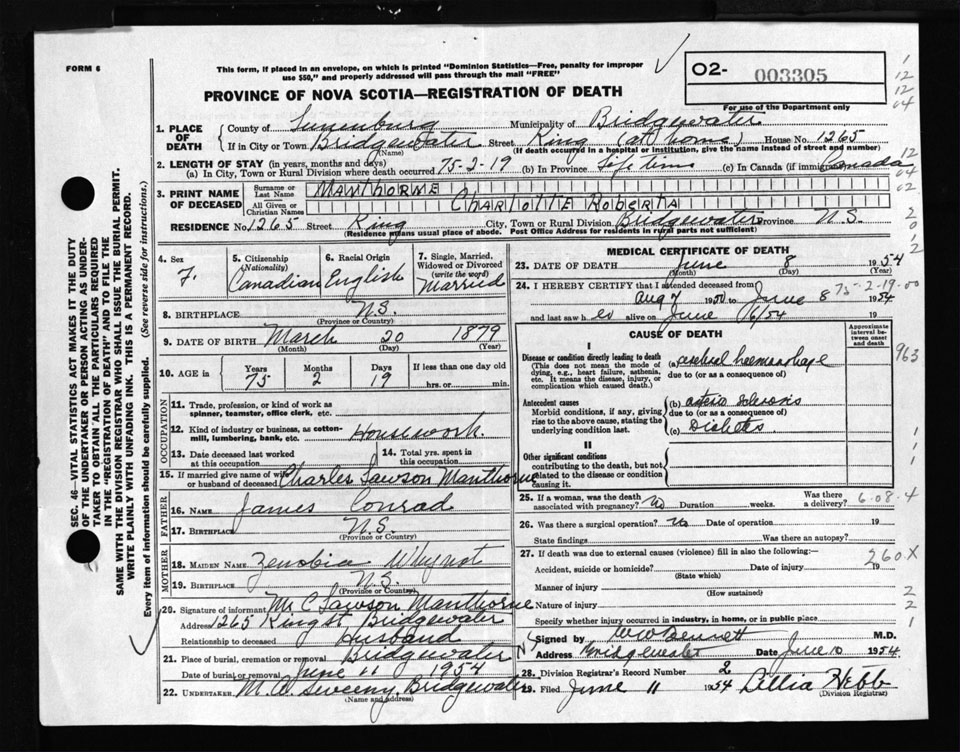 FORM 6
This form, if placed in an envelope, on which is printed "Dominion Statistics—Free, penalty for improper
use $50," and properly addressed will pass through the mail "FREE"
O2- 003305
For use of the Department only
PROVINCE OF NOVA SCOTIA—REGISTRATION OF DEATH
1. PLACE OF DEATH
County of Lunenburg Municipality of Bridgewater
If in City or Town Bridgewater Street King (at home) House No. 1265
(Name) (If death occurred in a hospital or institution, give the name instead of street and number)
2. LENGTH OF STAY (in years, months and days)
(a) In City, Town or Rural Division where death occurred 75-2-19 (b) In Province Life time (c) In Canada (if immigrant) Canada
3. PRINT NAME OF DECEASED
Surname or Last Name MANTHORNE
All Given or Christian Names CHARLOTTE ROBERTA
RESIDENCE No. 1265 Street King City, Town or Rural Division Bridgewater Province N.S.
(Residence means usual place of abode. Post Office Address for residents in rural parts not sufficient)
4. Sex F.
5. Citizenship (Nationality) Canadian
6. Racial Origin English
7. Single, Married, Widowed or Divorced (write the word) Married
8. BIRTHPLACE N.S.
(Province or Country)
9. DATE OF BIRTH March 20 1879
(Month) (Day) (Year)
10. AGE in Years 75 Months 2 Days 19 If less than one day old hrs. or min.
OCCUPATION
11. Trade, profession, or kind of work as spinner, teamster, office clerk, etc.
12. Kind of industry or business, as cotton-mill, lumbering, bank, etc. Housework
13. Date deceased last worked at this occupation
14. Total yrs. spent in this occupation
15. If married give name of wife or husband of deceased Charles Lawson Manthorne
FATHER
16. NAME James Conrad
17. BIRTHPLACE N.S.
(Province or Country)
MOTHER
18. MAIDEN NAME Zenobia Whynot
19. BIRTHPLACE N.S.
(Province or Country)
20. Signature of informant Mr C Lawson Manthorne
Address 1265 King St Bridgewater
Relationship to deceased Husband
21. Place of burial, cremation or removal Bridgewater
Date of burial or removal June 11 1954
22. UNDERTAKER M. A. Sweeny, Bridgewater
(Name and Address)
MEDICAL CERTIFICATE OF DEATH
23. DATE OF DEATH June 8 1954
(Month) (Day) (Year)
24. I HEREBY CERTIFY that I attended deceased from
Aug 7 1950 to June 8 1954
75-2-19-00
and last saw h er alive on June 6/54 19
CAUSE OF DEATH
Approximate interval between onset and death
I
Disease or condition directly leading to death
(This does not mean the mode of dying, e.g., heart failure, asthenia, etc. It means the disease, injury, or complication which caused death.)
(a) cerebral heemorrhage
due to (or as a consequence of)
Antecedent causes
Morbid conditions, if any, giving rise to the above cause, stating the underlying condition last.
(b) arterio sclerosis
due to (or as a consequence of)
(c) Diabetes
II
Other significant conditions
contributing to the death, but not related to the disease or condition causing it.
963
25. If a woman, was the death associated with pregnancy? No Duration weeks. Was there a delivery?
6-08-4
26. Was there a surgical operation? No Date of operation 19
State findings Was there an autopsy?
27. If death was due to external causes (violence) fill in also the following:—
Accident, suicide or homicide? Date of injury 19
(State which)
260X
Manner of injury
(How sustained)
Nature of injury
Specify whether injury occurred in industry, in home, or in public place
Signed by W W Bennett M.D.
Address Bridgewater Date June 10 1954
28. Division Registrar's Record Number 2
29. Filed June 11 1954 Lillia Hebb
(Division Registrar)
SEC. 46—VITAL STATISTICS ACT MAKES IT THE DUTY
OF THE UNDERTAKER OR PERSON ACTING AS UNDER-
TAKER TO OBTAIN ALL THE PARTICULARS REQUIRED
IN THE "REGISTRATION OF DEATH" AND TO FILE THE
SAME WITH THE DIVISION REGISTRAR WHO SHALL ISSUE THE BURIAL PERMIT.
WRITE PLAINLY WITH UNFADING INK. THIS IS A PERMANENT RECORD.
Every item of information should be carefully supplied. (See reverse side for instructions.)